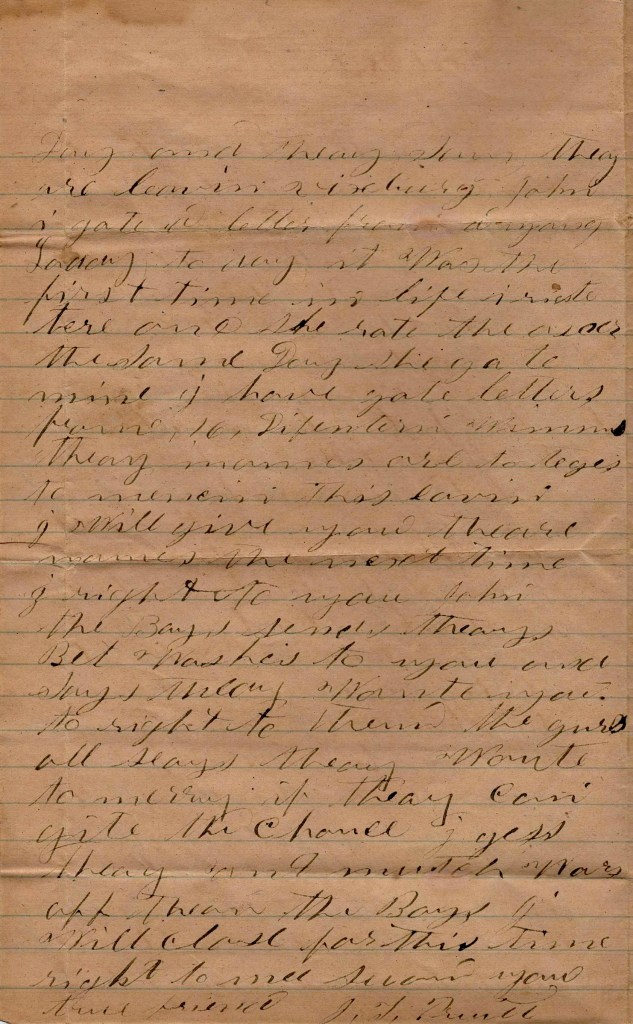 Day and theay Says theay
are leavin John
i gate a letter from a yong
Laday to day it Was the
first time in life i rote
here and She rote the
the Same Day She gate
mine j have gate letters
from 10 Difentern Wimmen
theay names are to
to mencin this eavnin
j Will give you theare
names the next time
j right to you John
the Boys sends theays
Bet Washes to you and
Says theay Wante you
to right to them the gurls
all Says theay Wante
to merry if theay can
gite the Chance j gess
theay ant mutch Wars
off thean the Boys j
Will close for this time
right to me Swoon your
true friend J. T. Pruitt